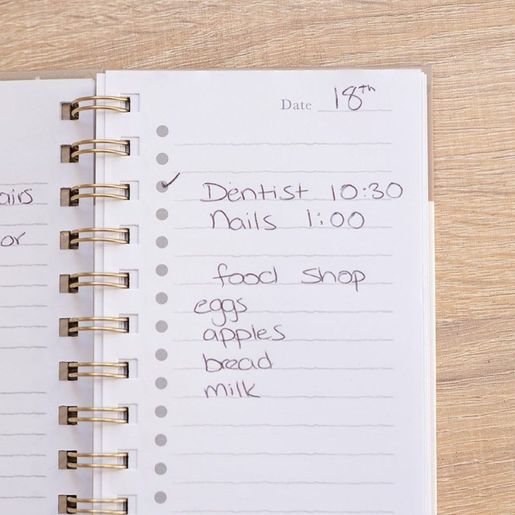 airs
or
Date 18th
Dentist 10:30
Nails 1:00
food shop
eggs
apples
bread
milk